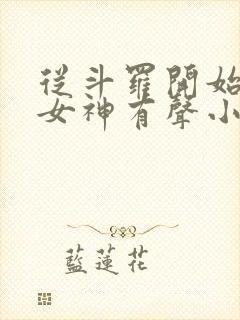 從斗羅開始
女神有聲小
藍蓮花